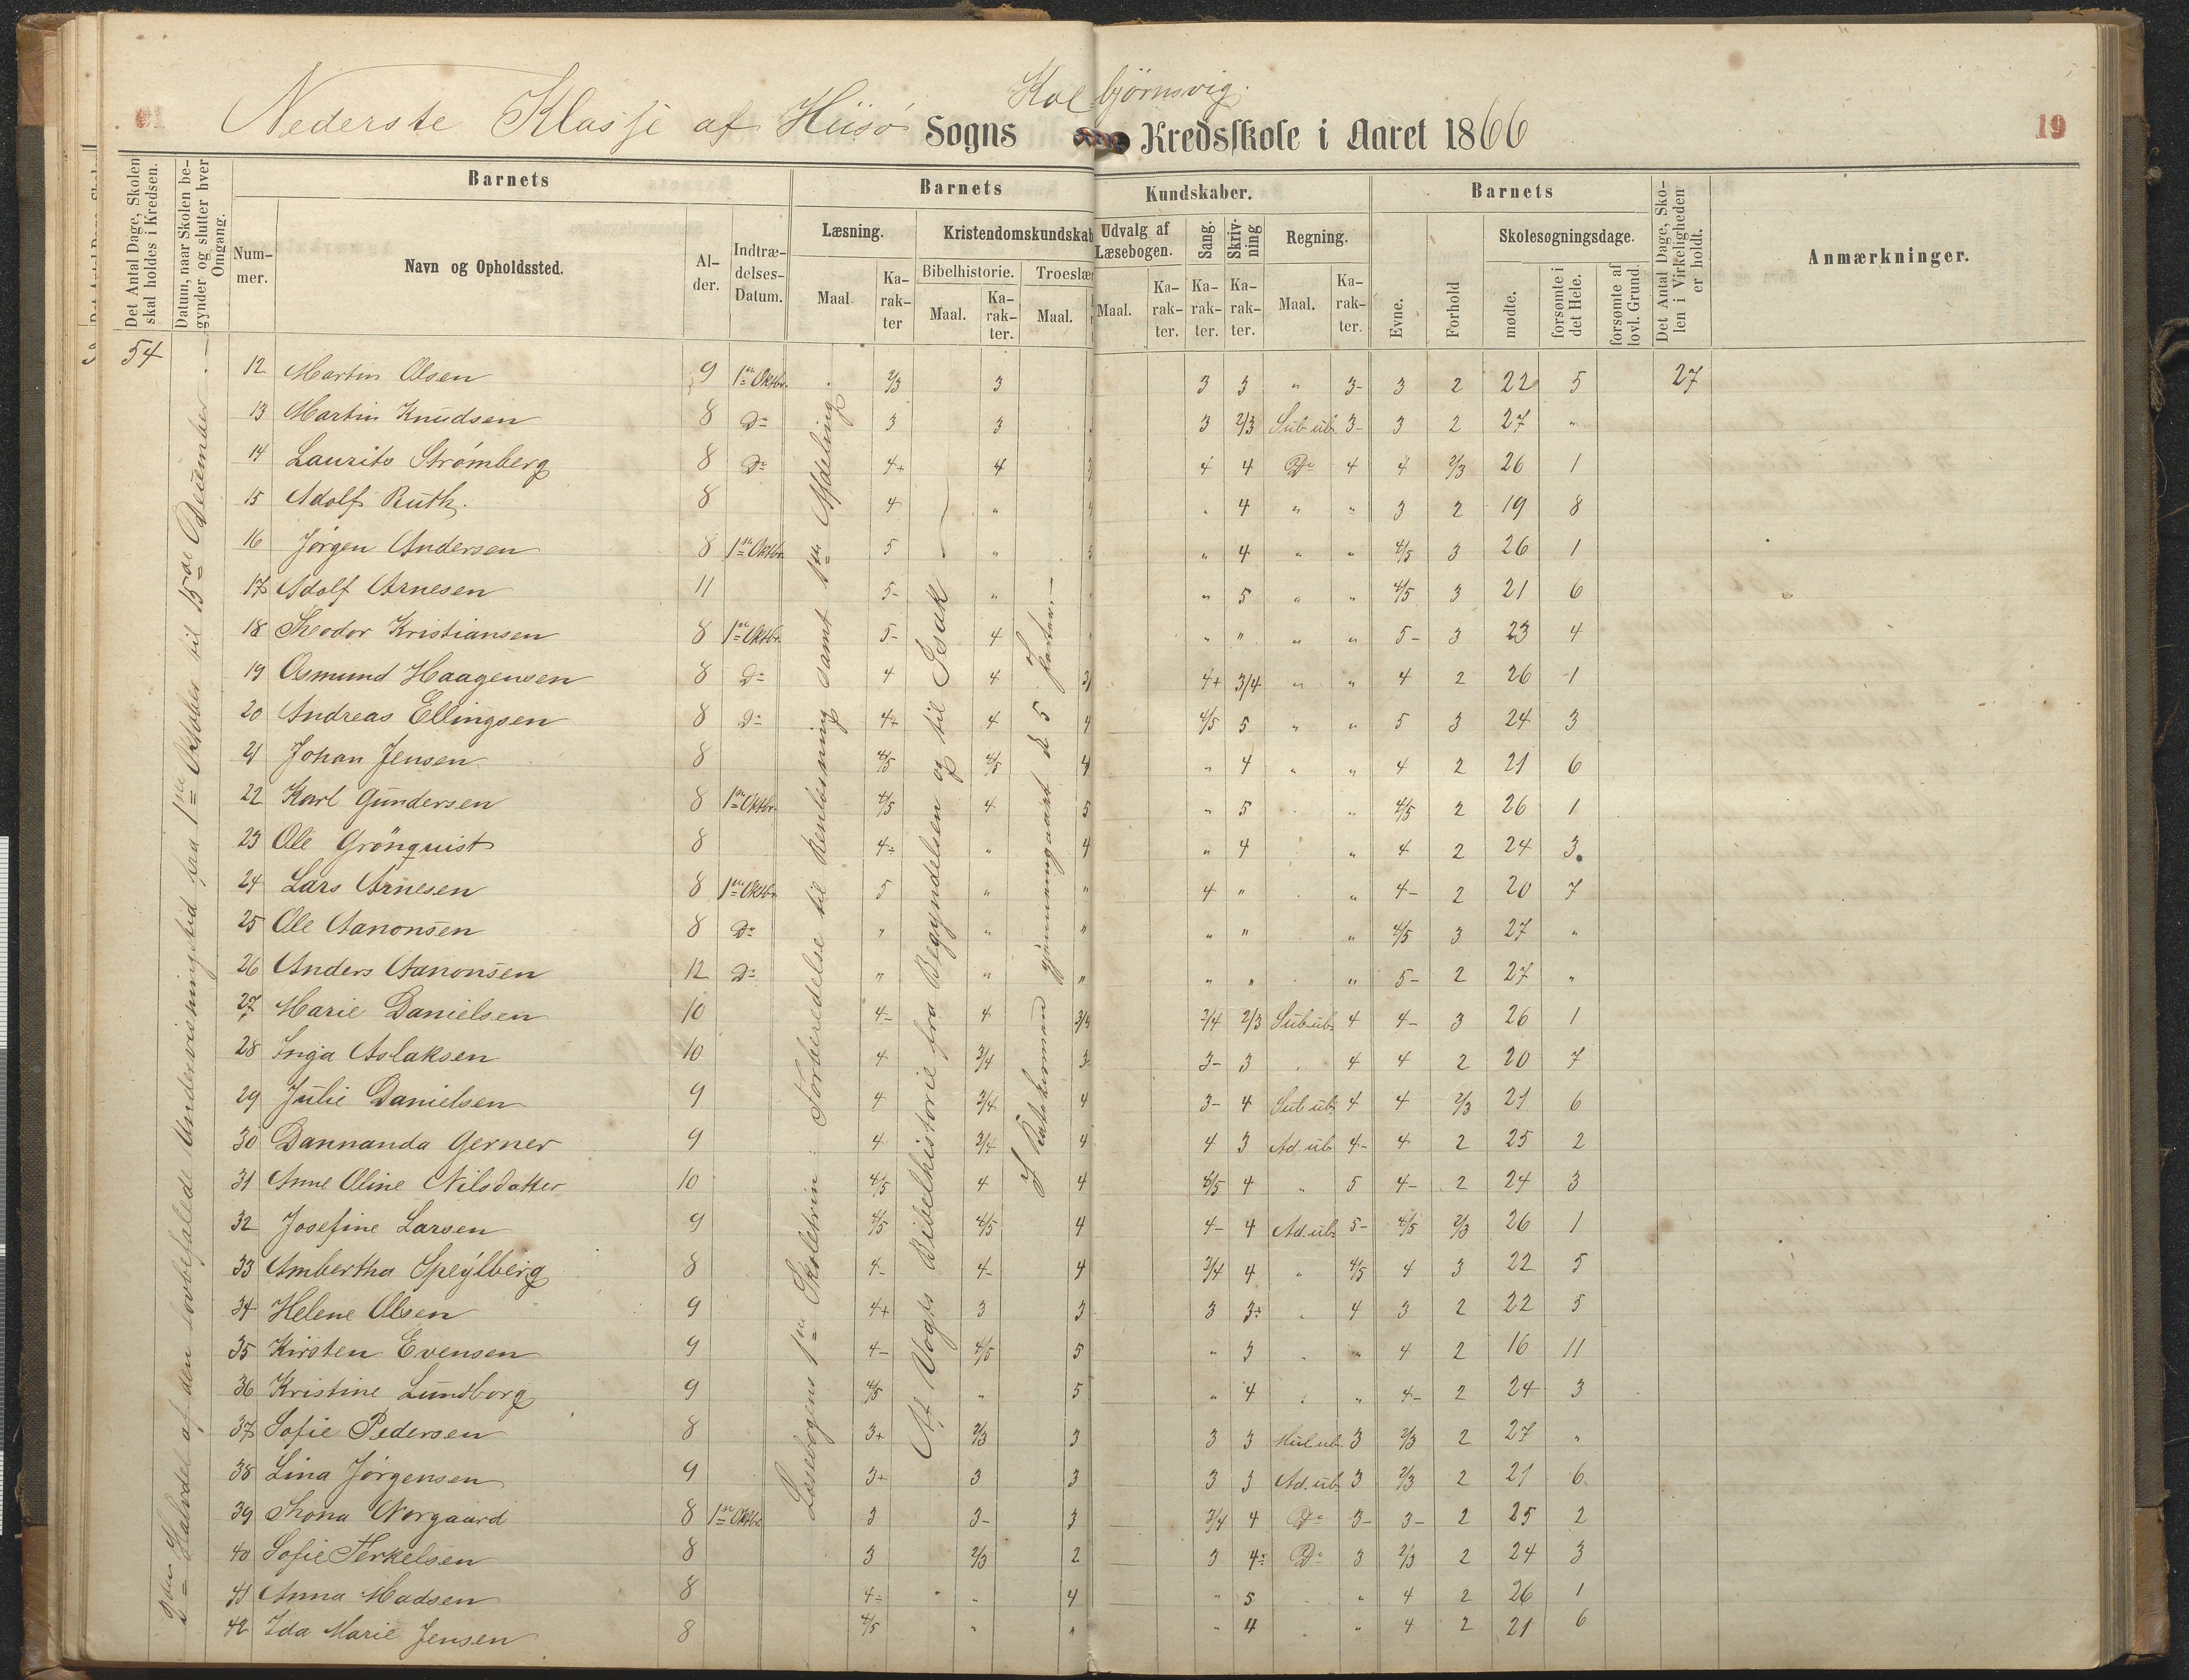 Kolbjørnsvig.
Nederste Klasse af Hisø Sogns Kredsskole i Aaret 1866
19
Det Antal Dage, Skolen skal holdes i Kredsen.
Datum, naar Skolen begynder og slutter hver Omgang.
Barnets
Barnets
Kundskaber.
Barnets
Det Antal Dage, Skolen i Virkeligheden er holdt.
Anmærkninger.
Nummer.
Navn og Opholdssted.
Alder.
Indtrædelses-Datum.
Læsning.
Kristendomskundskab
Udvalg af Læsebogen.
Sang.
Skrivning
Regning.
Evne.
Forhold
Skolesøgningsdage.
Maal.
Karakter
Bibelhistorie.
Troeslær
Maal.
Karakter.
Maal.
Maal.
Karakter.
Karakter.
Karakter.
Maal.
Karakter.
mødte.
forsømte i det Hele.
forsømte af lovl. Grund.
54
2den Halvdel af den lovbefalede Undervisningstid fra 1ste Oktober til 15de December.
Læsebogens 1ste Skoletrin: Forberedelse til Renlæsning samt 1ste Afdeling
Af Vogts Bibelhistorie fra Begyndelsen og til Isak
I Katekismus gjennemgaaet de 5 Parter.
12 Martin Olsen 9 1ste Oktbr. 2/3 3 3 3 " 3- 3 2 22 5 27
13 Martin Knudsen 8 Do 3 3 3 2/3 Sub. ub. 3- 3 2 27 "
14 Laurits Strømberg 8 Do 4+ 4 3 4 4 Do 4 4 2/3 26 1
15 Adolf Ruth. 8 4 " 4 " 4 " " 3 2 19 8
16 Jørgen Andersen 8 1ste Oktbr. 5 " 5 " 4 " " 4/5 3 26 1
17 Adolf Arnesen 11 5- " " " 5 " " 4/5 3 21 6
18 Theodor Kristiansen 8 1ste Oktbr. 5- 4 " " " " " 5- 3 23 4
19 Osmund Haagensen 8 Do 4 4 3/ 4+ 3/4 " " 4 2 26 1
20 Andreas Ellingsen 8 Do 4+ 4 4 4/5 5 " " 5 3 24 3
21 Johan Jensen 8 4/5 4/5 4 " 4 " " 4 2 21 6
22 Karl Gundersen 8 1ste Oktbr. 4/5 4 5 " 5 " 4/5 2 26 1
23 Ole Grönquist 8 4÷ " 4 " 4 " 4 2 24 3
24 Lars Arnesen 8 1ste Oktbr. 5 " " 4 " " 4- 2 20 7
25 Ole Aanonsen 8 Do " " " " " " 4/5 3 27 "
26 Anders Aanonsen 12 Do " " " " " " 5- 2 27 "
27 Marie Danielsen 10 4- 4 3/4 3/4 2/3 Sub. ub. 4 4- 3 26 1
28 Inga Aslaksen 10 4 3/4 3 3- 3 4 4 2 20 7
29 Julie Danielsen 9 4 3/4 4 3- 4 Sub. ub. 4 4 2/3 21 6
30 Dannanda Gerner 9 4 3/4 4 4 3 Ad. ub. 4- 4 2 25 2
31 Anne Oline Nilsdatter 10 4/5 4 4 4/5 4 " 5 4- 2 24 3
32 Josefine Larsen 9 4/5 4/5 4 4- 4 Ad. ub. 5- 4/5 2/3 26 1
33 Ambertha Speylberg 8 4- 4- 4 3/4 4 " 4/5 4 3 22 5
34 Helene Olsen 9 4+ 3 3 3 3+ 4 3 2 22 5
35 Kirsten Evensen 9 4- 4/5 5 " 3 " 4 2 16 11
36 Kristine Lundborg 9 4/5 " 5 " 4 " 4- 2 24 3
37 Sofie Pedersen 8 3+ 2/3 3 3 3 Mul. ub. 3 2/3 2 27 "
38 Lina Jørgensen 9 3+ 3 3 3 3 Ad. ub. 3 2/3 2 21 6
39 Thona Norgaard 8 1ste Oktbr. 3 3- 3 3/4 4 Do 3- 3- 2 25 2
40 Sofie Terkelsen 8 3 2/3 2 3 4÷ Do 3 2/3 2 24 3
41 Anna Madsen 8 4÷ " 4 " 5 " 4 2 26 1
42 Ida Marie Jensen 8 4/5 " " " 4 " 4 2 21 6